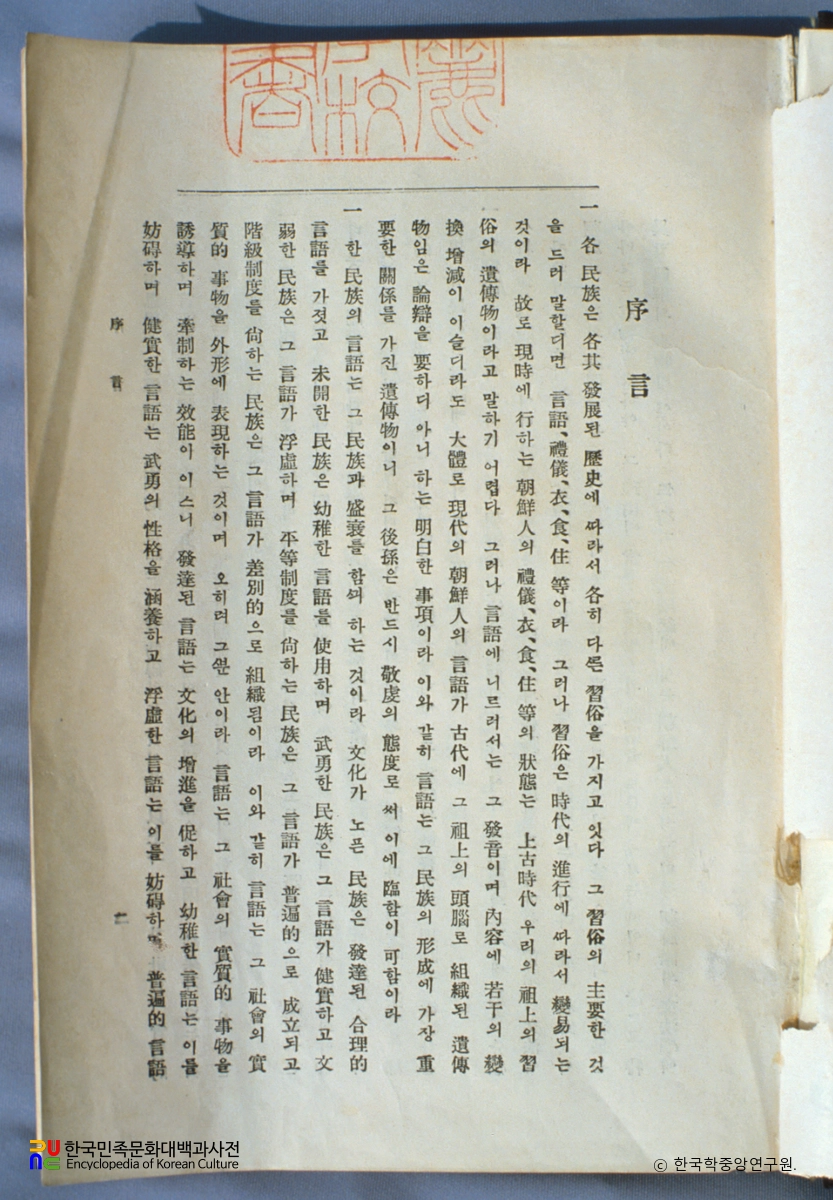 序言
一 各 民族은 各其 發展된 歷史에 따라서 各히 다른 習俗을 가지고 잇다 그 習俗의 主要한 것
을 드러 말할디면 言語、禮儀、衣、食、住 等이라 그러나 習俗은 時代의 進行에 따라서 變易되는
것이라 故로 現時에 行하는 朝鮮人의 禮儀、衣、食、住 等의 狀態는 上古時代 우리의 祖上의 習
俗의 遺傳物이라고 말하기 어렵다 그러나 言語에 니르러서는 그 發音이며 內容에 若干의 變
換 增減이 이슬디라도 大體로 現代의 朝鮮人의 言語가 古代에 그 祖上의 頭腦로 組織된 遺傳
物임은 論辯을 要하디 아니 하는 明白한 事項이라 이와 갇히 言語는 그 民族의 形成에 가장 重
要한 關係를 가진 遺傳物이니 그 後孫은 반드시 敬虔의 態度로 써 이에 臨함이 可함이라
一 한 民族의 言語는 그 民族과 盛衰를 함ᄭᅴ 하는 것이라 文化가 노픈 民族은 發達된 合理的
言語를 가젓고 未開한 民族은 幼稚한 言語를 使用하며 武勇한 民族은 그 言語가 健實하고 文
弱한 民族은 그 言語가 浮虛하며 平等制度를 尙하는 民族은 그 言語가 普遍的으로 成立되고
階級制度를 尙하는 民族은 그 言語가 差別的으로 組織됨이라 이와 갇히 言語는 그 社會의 實
質的 事物을 外形에 表現하는 것이며 오히려 그ᄲᅮᆫ 안이라 言語는 그 社會의 實質的 事物을
誘導하며 牽制하는 效能이 이스니 發達된 言語는 文化의 增進을 促하고 幼稚한 言語는 이를
妨碍하며 健實한 言語는 武勇의 性格을 涵養하고 浮虛한 言語는 이를 妨碍하며 普遍的 言語
序言
한국민족문화대백과사전
Encyclopedia of Korean Culture
© 한국학중앙연구원.